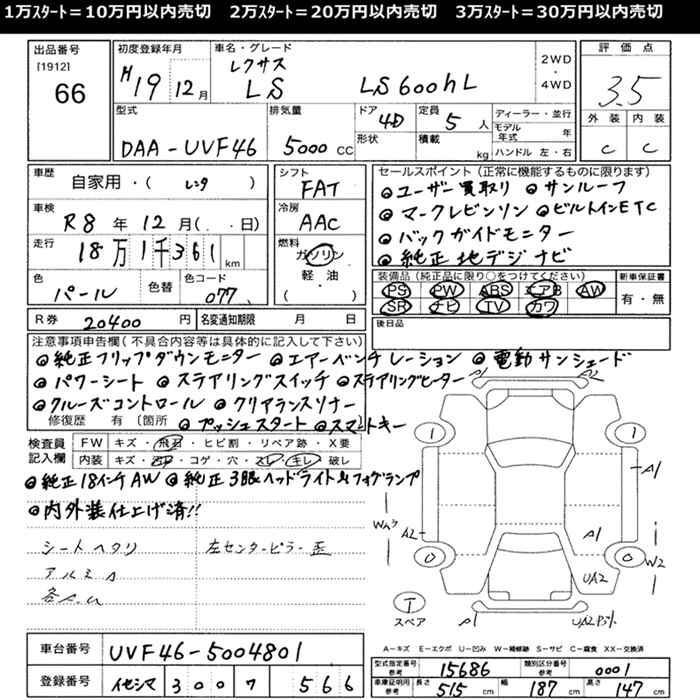 1万スタート＝10万円以内売切　2万スタート＝20万円以内売切　3万スタート＝30万円以内売切
出品番号 初度登録年月 車名・グレード 2WD・4WD 評価点
[1912] 66 H19 12月 レクサス LS LS600hL 3.5
外装 内装
C C
型式 排気量 ドア 定員 ディーラー・並行
DAA-UVF46 5000cc 4D 5人 モデル年式 年
形状 積載 kg ハンドル 左・右
車歴 自家用・( レンタ )
シフト FAT
車検 R8年12月( . . 日)
冷房 AAC
走行 18万1千361km
燃料 ガソリン 軽・油 ( )
色 パール 色替 色コード 077
R券 20400円 名変通知期限 月 日
セールスポイント（正常に機能するものに限ります）
◎ユーザー買取り ◎サンルーフ
◎マークレビンソン ◎ビルトインETC
◎バックガイドモニター
◎純正地デジナビ
装備品（純正品に限り○をつけてください） 新車保証書
PS PW ABS エアB AW 有・無
SR ナビ TV カワ
後日品
注意事項申告欄（不具合内容等は具体的に記入して下さい）
◎純正フリップダウンモニター ◎エアーベンチレーション ◎電動サンシェード
◎パワーシート ◎ステアリングスイッチ ◎ステアリングヒーター
◎クルーズコントロール ◎クリアランスソナー
修復歴 有 〔箇所 ◎プッシュスタート ◎スマートキー
検査員記入欄 FW キズ・飛石・ヒビ割・リペア跡・X要
内装 キズ・ヨゴレ・コゲ・穴・スレ・キレ・破レ
◎純正18インチAW ◎純正3眼ヘッドライト&フォグランプ
◎内外装仕上げ済!!
シートヘタリ 左センターピラー歪
アルミA
各A.U
A1 A2
1 1
A1
Wカラ A2 A1
0 0 W2
UA2
T
スペア A1 UA2P5%
A＝キズ E＝エクボ U＝凹み W＝補修跡 S＝サビ C＝腐食 XX＝交換済
車台番号 UVF46-5004801
登録番号 イセシマ 300 ワ 566
型式指定番号 参考 15686 類別区分番号 参考 0001
車庫証明用 参考 長さ 515cm 幅 187cm 高さ 147cm